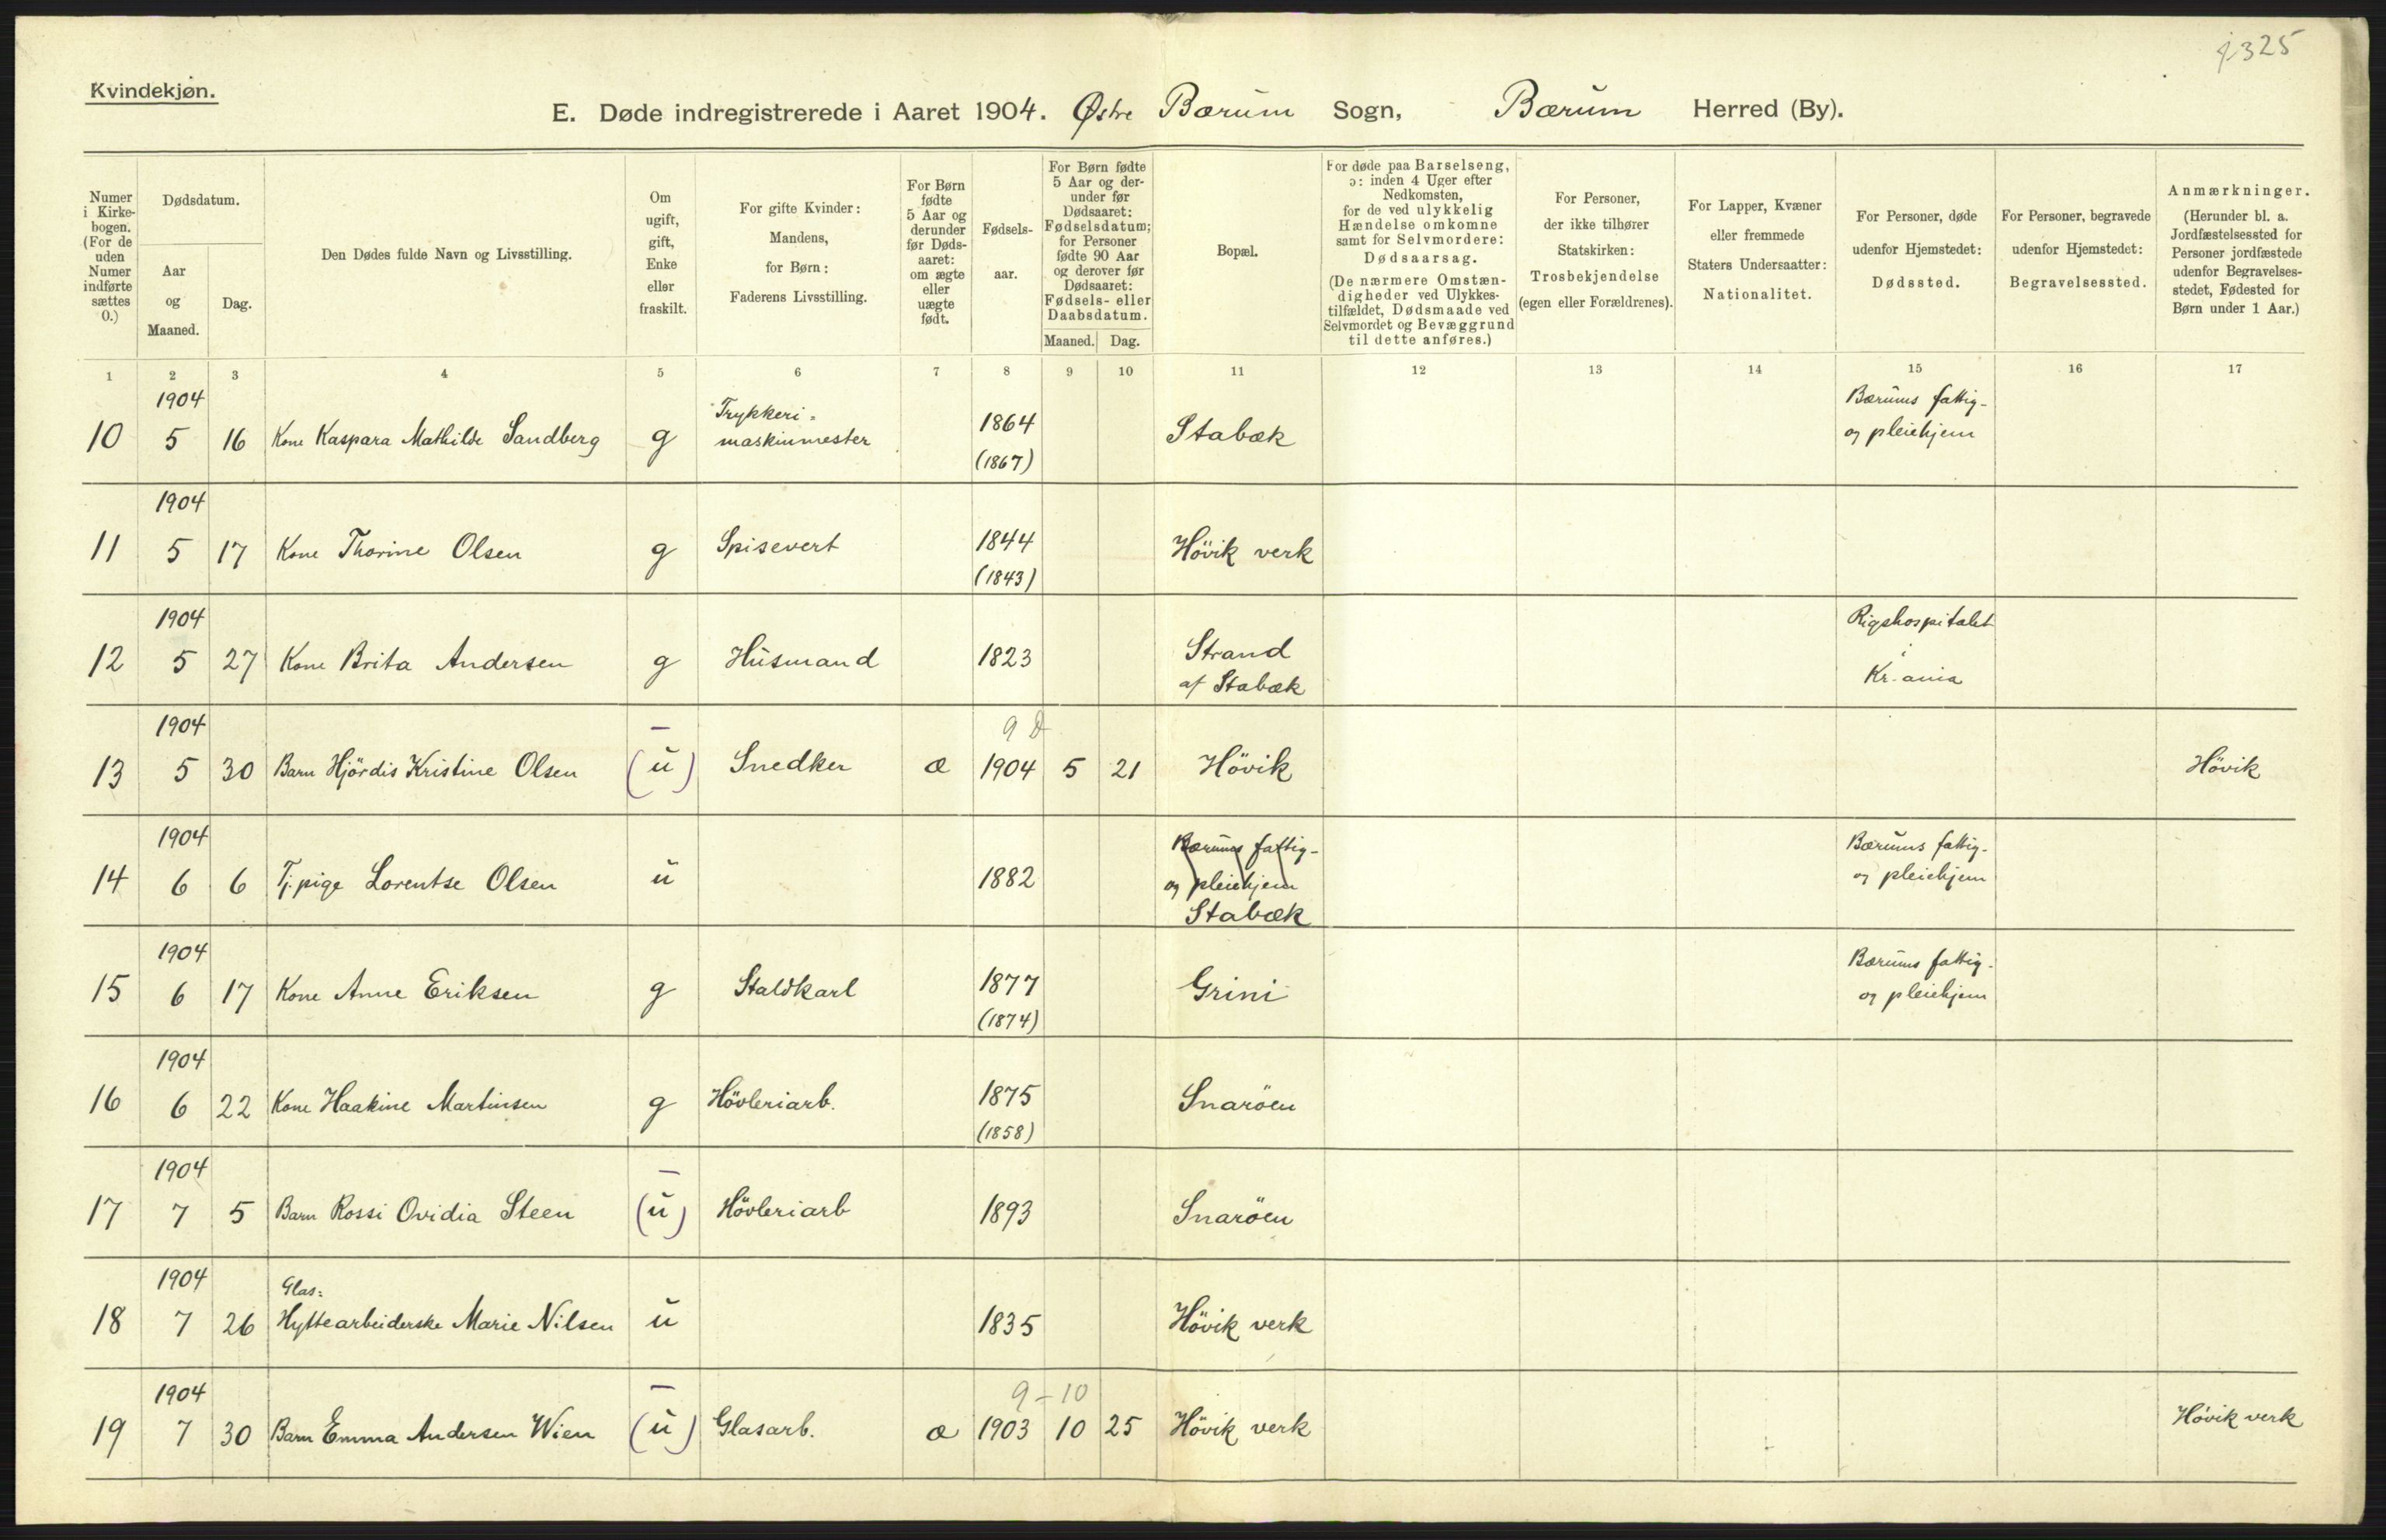 325
Kvindekjøn.
E. Døde indregistrerede i Aaret 1904. Østre Bærum Sogn, Bærum Herred (By).
Numer i Kirkebogen. (For de uden Numer indførte sættes 0.)
Dødsdatum.
Aar og Maaned.
Dag.
Den Dødes fulde Navn og Livsstilling.
Om ugift, gift, Enke eller fraskilt.
For gifte Kvinder: Mandens, for Børn: Faderens Livsstilling.
For Børn fødte 5 Aar og derunder før Dødsaaret: om ægte eller uægte født.
Fødsels-aar.
For Børn fødte 5 Aar og derunder før Dødsaaret: Fødselsdatum; for Personer fødte 90 Aar og derover før Dødsaaret: Fødsels- eller Daabsdatum.
Maaned. Dag.
Bopæl.
For døde paa Barselseng, ɔ: inden 4 Uger efter Nedkomsten, for de ved ulykkelig Hændelse omkomne samt for Selvmordere: Dødsaarsag.
(De nærmere Omstændigheder ved Ulykkestilfældet, Dødsmaade ved Selvmordet og Bevæggrund til dette anføres.)
For Personer, der ikke tilhører Statskirken: Trosbekjendelse (egen eller Forældrenes).
For Lapper, Kvæner eller fremmede Staters Undersaatter: Nationalitet.
For Personer, døde udenfor Hjemstedet: Dødssted.
For Personer, begravede udenfor Hjemstedet: Begravelsessted.
Anmærkninger.
(Herunder bl. a. Jordfæstelsessted for Personer jordfæstede udenfor Begravelsesstedet, Fødested for Børn under 1 Aar.)
1 2 3 4 5 6 7 8 9 10 11 12 13 14 15 16 17
1904 Trykkeri= Bærums fattig-
10 5 16 Kone Kaspara Mathilde Sandberg g maskinmester 1864 Stabæk og pleiehjem
(1867)
1904
11 5 17 Kone Thorine Olsen g Spisevert 1844 Hövik verk
(1843)
1904 Rigshospitalet
12 5 27 Kone Brita Andersen g Husmand 1823 Strand i
af Stabæk Kr.ania
1904 9 D
13 5 30 Barn Hjördis Kristine Olsen (u) Snedker æ 1904 5 21 Hövik Hövik
1904 Bærums fattig- Bærums fattig-
14 6 6 Tj.pige Lorentse Olsen u 1882 og pleiehjem og pleiehjem
Stabæk
1904 Bærums fattig-
15 6 17 Kone Anne Eriksen g Staldkarl 1877 Grini og pleiehjem
(1874)
1904
16 6 22 Kone Haakine Martinsen g Hövleriarb. 1875 Snaröen
(1858)
1904
17 7 5 Barn Rossi Ovidia Steen (u) Hövleriarb 1893 Snaröen
1904 Glas=
18 7 26 Hyttearbeiderske Marie Nilsen u 1835 Hövik verk
1904 9-10
19 7 30 Barn Emma Andersen Wien (u) Glasarb. æ 1903 10 25 Hövik verk Hövik verk